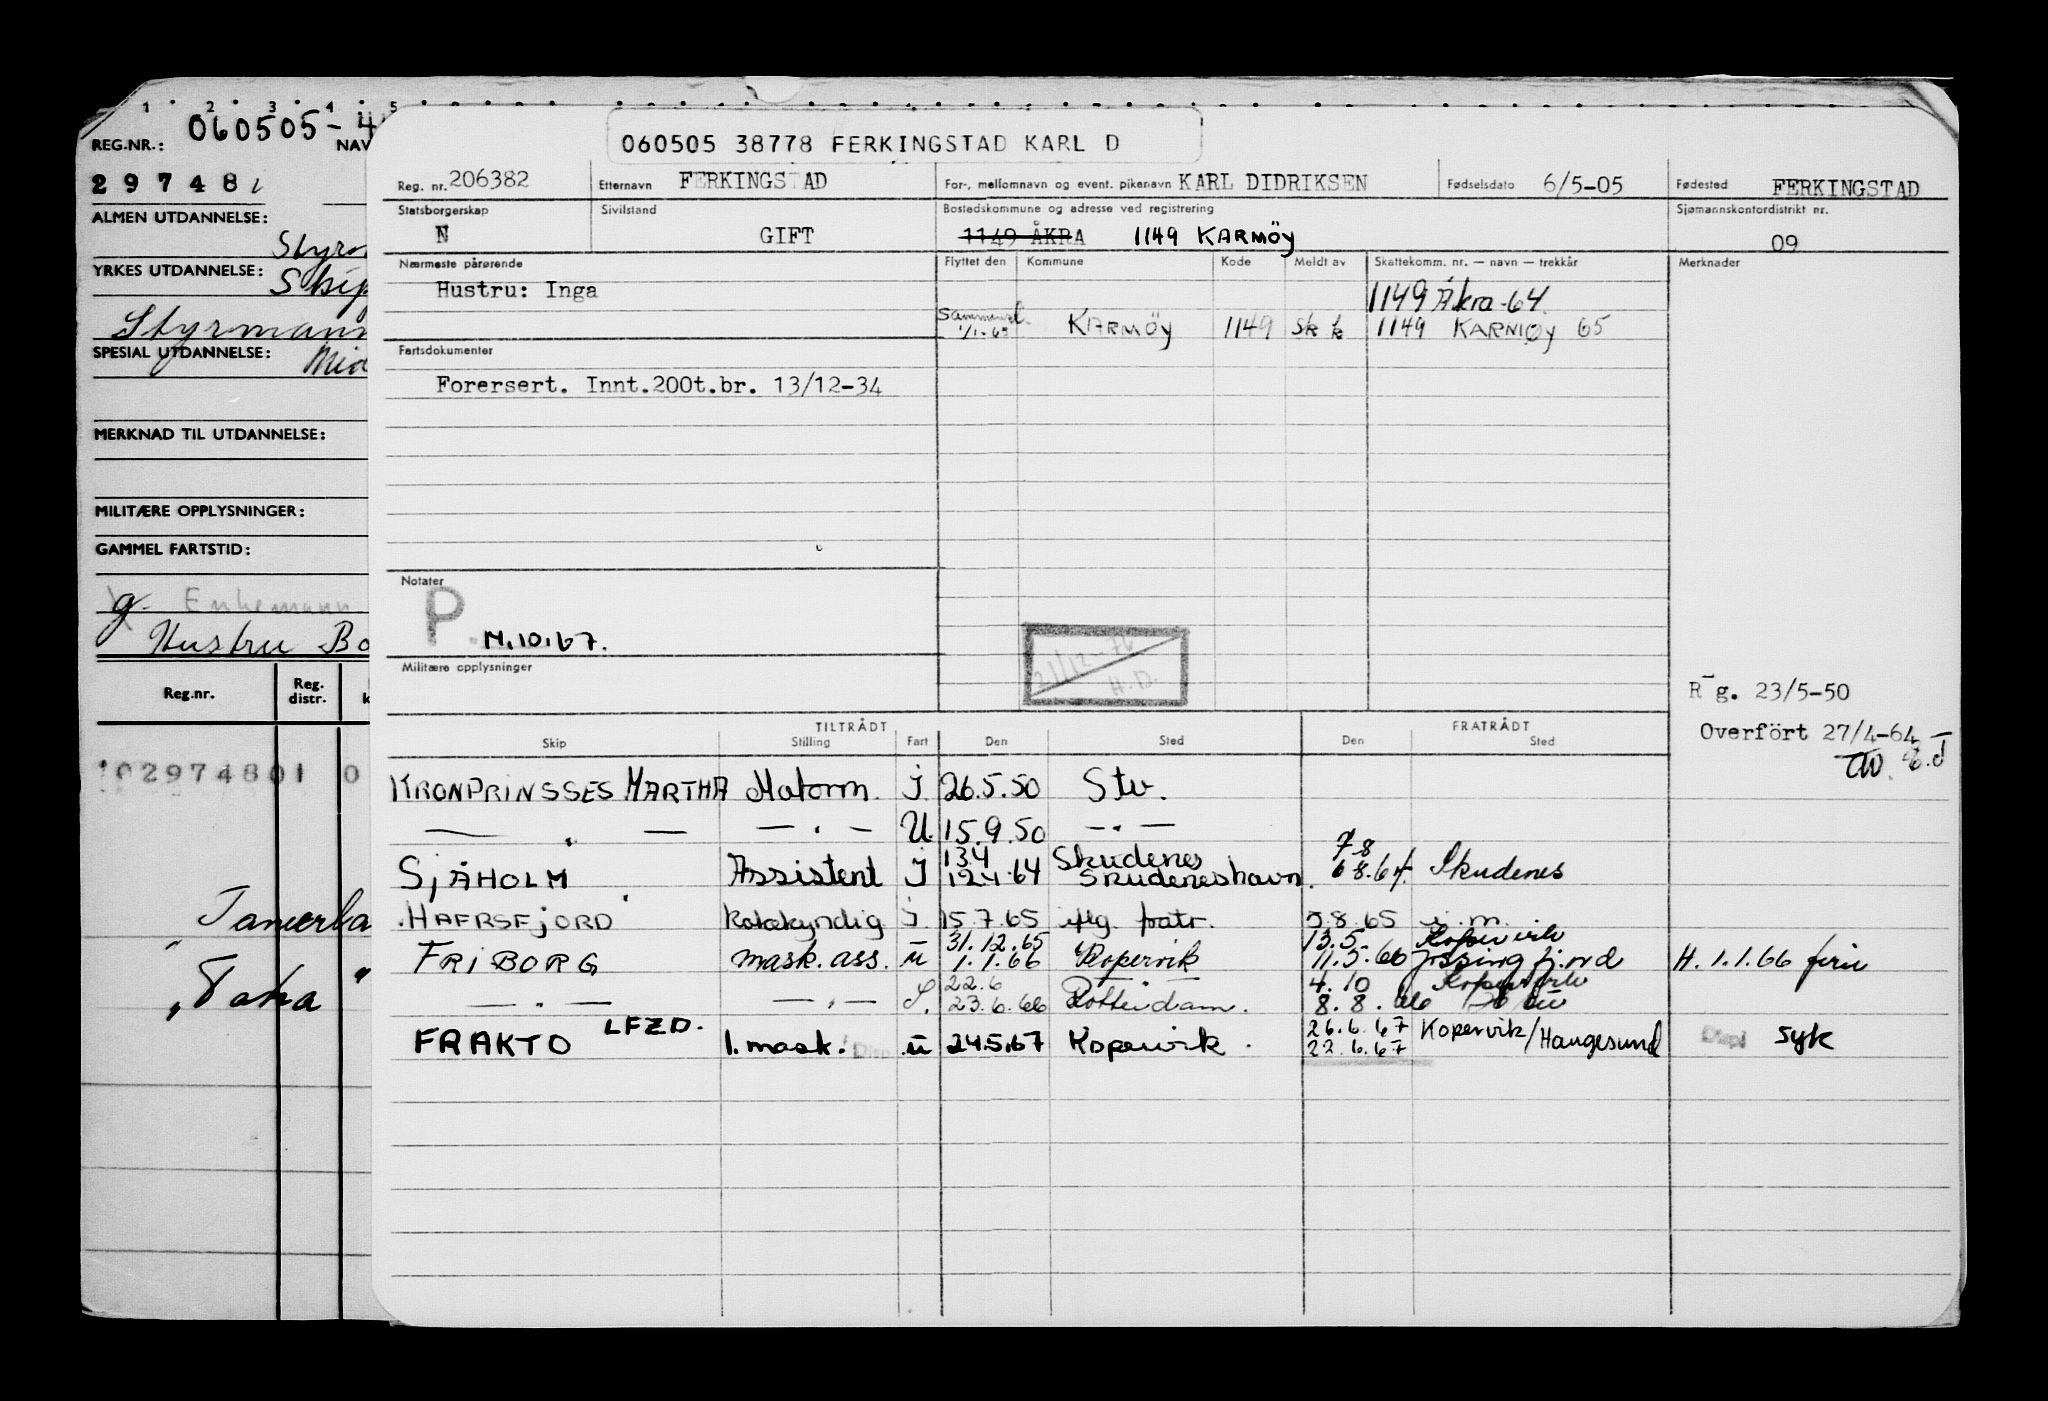 1 2 3 4 5
REG.NR.: 060505-4 NAV
29748
ALMEN UTDANNELSE:
YRKES UTDANNELSE:
SPESIAL UTDANNELSE:
MERKNAD TIL UTDANNELSE:
MILITÆRE OPPLYSNINGER:
GAMMEL FARTSTID:
g. Enkemann
Hustru Bo
Reg.nr. Reg. distr. k
10297480 1 0
"Toka"
060505 38778 FERKINGSTAD KARL D
Reg. nr. 206382 Etternavn FERKINGSTAD For-, mellomnavn og event. pikenavn KARL DIDRIKSEN Fødselsdato 6/5-05 Fødested FERKINGSTAD
Statsborgerskap Sivilstand Bostedskommune og adresse ved registrering Sjømannskontordistrikt nr.
N GIFT 1149 ÅKRA 1149 KARMÖY 09
Nærmeste pårørende Flyttet den Kommune Kode Meldt av Skattekomm. nr. — navn — trekkår Merknader
Hustru: Inga 1149 Åkra-64.
1/1-65 KARMÖY 1149 Sk k 1149 KARMÖY 65
Fartsdokumenter
Forersert. Innt.200t.br. 13/12-34
Notater
P. M.10.67.
21/12-76
H.D.
Militære opplysninger
R g. 23/5-50
Overført 27/4-64
TILTRÅDT FRATRÅDT
Skip Stilling Fart Den Sted Den Sted
KRONPRINSSES MARTHA Matorm. I. 26.5.50 Stv.
— " — — " — U. 15.9.50 — " —
13.4 Skudenes 7.8
SJÅHOLM Assistent I 12.4.64 Skudeneshavn. 6 8.64. Skudenes
HAFRSFJORD Kokekyndig I. 15.7.65 iflg. fratr. 5.8.65 i.m.
31.12.65 13.5. Kopervik
FRIBORG mask. ass. U 1.1.66 Kopervik 11.5.66 Jøssingfjord H. 1.1.66 ferie
22.6 4.10 Kopervik
— " — — " — S. 23.6.66 Rotterdam. 8.8.66
LFZD. 26.6.67 Kopervik/Haugesund
FRAKTO 1. mask. Disp U 24.5.67 Kopervik. 22.6.67 Disp syk